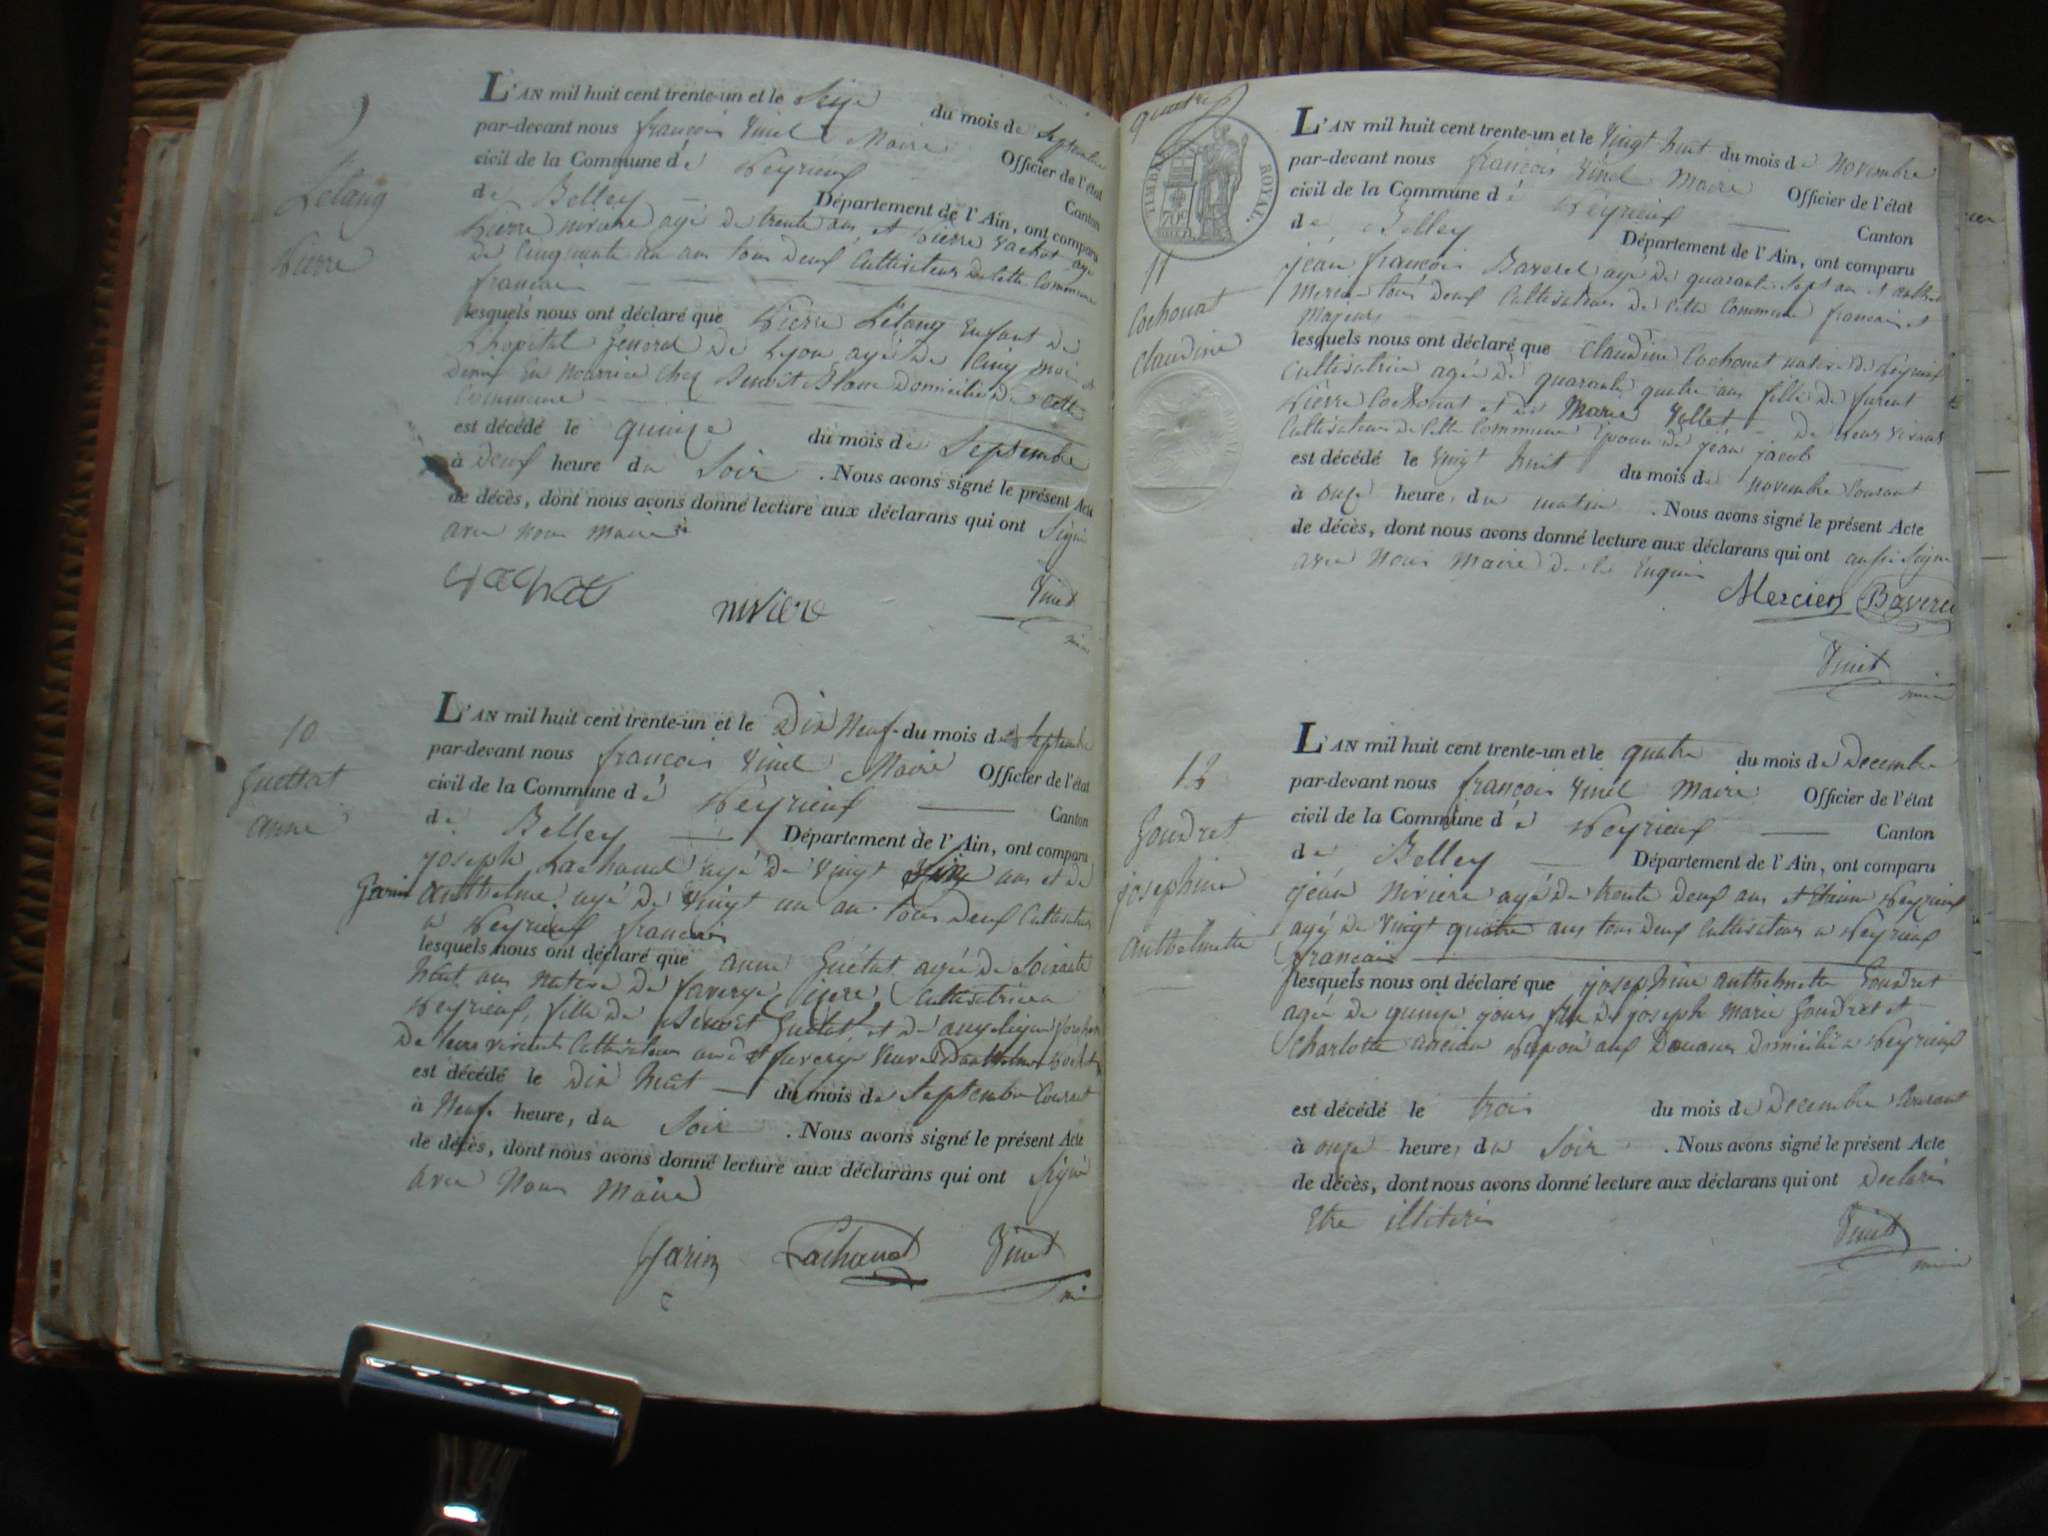 9
Letang
Pierre
L'AN mil huit cent trente-un et le Seize du mois de Septembre
par-devant nous françois Vinet Maire Officier de l'état
civil de la Commune dé Peyrieux Canton
de Belley Département de l'Ain, ont comparu
Pierre nivière agé de trente ans et Pierre Vachat agé
de Cinquante un ans tous deux Cultivateurs de Cette Commune
français
lesquels nous ont déclaré que Pierre Létang Enfant de
L'hopital General de Lyon agé de Cinq mois
En nourrice chez Benoit domicilié de Cette
Commune
est décédé le quinze du mois de Septembre
à Deux heure du Soir. Nous avons signé le présent Acte
de décès, dont nous avons donné lecture aux déclarans qui ont Signé
avec nous maire
Vachat
nivière
Vinet
10
Guettat
anne
L'AN mil huit cent trente-un et le Dix Neuf du mois de Septembre
par-devant nous françois Vinet Maire Officier de l'état
civil de la Commune dé Peyrieux Canton
de Belley Département de l'Ain, ont comparu
joseph Lachanal agé de Vingt ans et de
Garin anthelme agé de Vingt un an tous deux Cultivateurs
a Peyrieux français
lesquels nous ont déclaré que anne Guétat agée de Soixante
huit ans native de faverge isere Cultivatrice a
Peyrieux, fille de Benoit Guétat et de angelique
De leurs vivants Cultivateurs faverge Veuve Danthelme
est décédé le Dix huit du mois de Septembre Courant
à Neuf heure, du Soir. Nous avons signé le présent Acte
de décès, dont nous avons donné lecture aux déclarans qui ont Signé
avec Nous Maire
Garin Lachanal Vinet
quatre
TIMBRE ROYAL.
11
Cochonat
Claudine
L'AN mil huit cent trente-un et le Vingt huit du mois de Novembre
par-devant nous françois Vinet Maire Officier de l'état
civil de la Commune dé Peyrieux Canton
de Belley Département de l'Ain, ont comparu
jean françois Baverel agé de quarante Sept ans et
Mercier tous deux Cultivateurs de Cette Commune français et
Majeurs
lesquels nous ont déclaré que Claudine Cochonat native de Peyrieux
Cultivatrice agée de quarante quatre ans fille de furent
Pierre Cochonat et de Marie Vollet de leurs vivants
Cultivateurs de Cette Commune Epouse de jean jacob
est décédé le Vingt huit du mois de Novembre Courant
à onze heure, du matin. Nous avons signé le présent Acte
de décès, dont nous avons donné lecture aux déclarans qui ont aussi Signé
avec Nous Maire de ce Enquis
Mercier Baverel
Vinet
12
Goudret
josephine
anthelmette
L'AN mil huit cent trente-un et le quatre du mois de Decembre
par-devant nous françois Vinet Maire Officier de l'état
civil de la Commune dé Peyrieux Canton
de Belley Département de l'Ain, ont comparu
jean Nivière agé de trente deux ans et Peyrieux
agé de Vingt quatre ans tous deux Cultivateurs a Peyrieux
français
lesquels nous ont déclaré que josephine anthelmette Goudret
agée de quinze jours fille de joseph marie Goudret et
Charlotte ancien aux Douanes domicilié a Peyrieux
est décédé le trois du mois de Decembre Courant
à onze heure, du Soir. Nous avons signé le présent Acte
de décès, dont nous avons donné lecture aux déclarans qui ont Declaré
Etre illiteré
Vinet